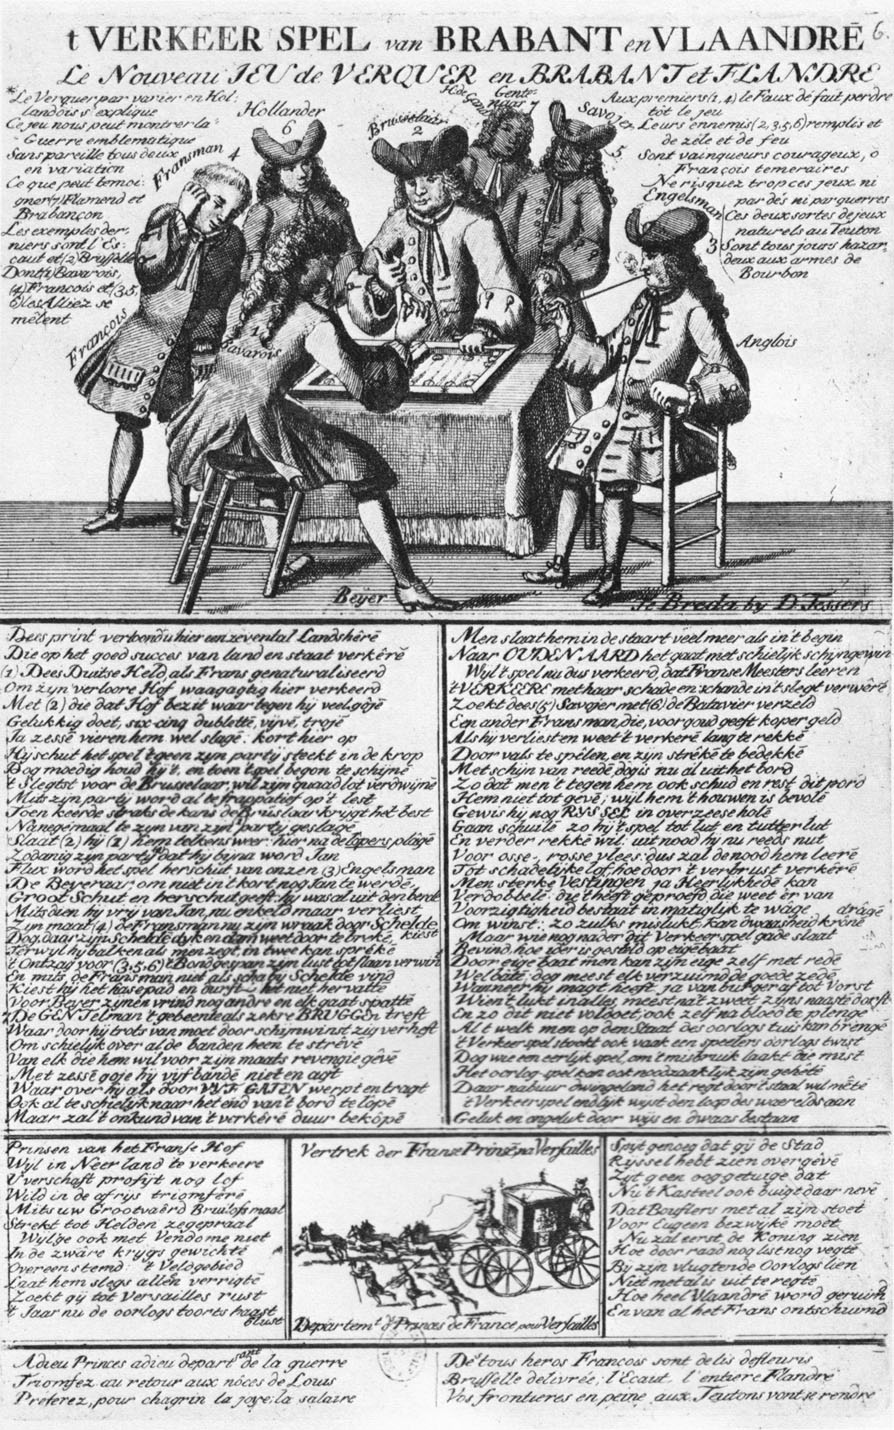 t VERKEER SPEL van BRABANT en VLAANDRĒ
6.
Le Nouveau JEU de VERQUER en BRABANT et FLANDRE
*Le Verquer par varier en Hol:
landois s'explique
Ce jeu nous peut montrer la
Guerre emblematique
Sans pareille tous deux
en variation
Ce que peut temoi:
gner (7) Flamend et
Brabançon
Les exemples der:
niers sont l'Es:
caut et (2) Brusselle
Dont (1) Bavarois,
(4) Francois et (3,5,
6) les Alliez se
mêlent
Fransman 4
Hollander
6
Brusselaar
2
Gente-
naar 7
Savoje
5
Aux premiers (1, 4) le Faux de faut perdre
tôt le jeu
Leurs ennemis (2,3,5,6) remplis et
de zéle et de feu
Sont vainqueurs courageux, o
François temeraires
Ne risquez trop ces jeux ni
par dés ni par guerres
Ces deux sortes de jeux
naturels au Teuton
Sont tous jours hazar:
deux aux armes de
Bourbon
Engelsman
3
Anglois
François
1
Bavarois
Beÿer
Te Breda by D. Tessers
Dees print vertoond u hier een zevental Landshērē
Die op het goed succes van land en staat verkērē
(1) Dees Duitse Held, als Frans genaturaliseerd
Om zijn verloore Hof waagagtig hier verkeerd
Met (2) die dat Hof bezit waar tegen hij veel gojē
Gelukkig doet, six cinq dublettē, vijvē, trojē
Ja zessē vieren hem wel slagē: kort hier op
Hij schut het spel 't geen zijn partij steekt in de krop
Dog moedig houd hij 't, en toen 't spel begon te schijnē
't Slegtst voor de Brusselaar, wil zijn quaad lot verdwijnē
Mits zijn partij word al te frappatief op 't lest
Toen keerde straks de kans de Bruslaar krijgt het best
Na negemaal te zijn van zijn partij geslagē
Slaat (2) hij (1) hem telkens weer: hier na de lopers plagē
Zodanig zijn partij dat hij bijna word Jan
Flux word het spel herschut van onzen (3) Engelsman
De Beyeraar, om niet in 't kort nog Jan te werdē,
Groot Schut en herschut geeft: hij was al uit den berdē
Mits dien hij vrij van Jan, nu enkeld maar verliest
Zijn maat (4) de Fransman nu zijn wraak door Schelde
kiest
Dog, daar zijn Schelde dyk en dam weet door te brekē,
Terwijl hij balken als men zegt, in twee kan sprekē
't Ontzag voor (3,5,6) 't Bondgespan zijn lust tot slaan verwint
En mits de Fransman niet als schaē bij Schelde vind
Kiest hij het hasepad en durft het niet hervattē
Voor Beyer zijnen vrind nog andre en elk gaat spattē
7 De GEN Telman 't gebeente als zekre BRUGGEn treft
Waar door hij trots van moet door schijnwinst zig verheft
Om schielijk over al de banden heen te strēvē
Van elk die hem wil voor zijn maats revengie gēvē
Met zessē goje hij vijf bandē niet en agt
Waar over hij als door VYF GATEN werpt en tragt
Ook al te schielijk naar het end van 't bord te lopē
Maar zal 't onkund van 't verkērē duur bekōpē
Men slaat hem in de staart veel meer als in 't begin
Naar OUDENAARD het gaat met schielijk schijngewin
Wijl 't spel nu dus verkeerd, dat Franse Meesters leeren
't VERKEERE met haar schade en schande in 't slegt verwērē
Zoekt dees (5) Savojer met (6) de Batavier verzeld
Een ander Fransman, die, voor goud geeft koper geld
Als hij verliest en weet 't verkērē lang te rekkē
Door vals te spēlen, en zijn strēkē te bedekkē
Met schijn van reedē dog is nu al uit het bord
Zo dat men 't tegen hem ook schud en rest dit pord
Hem niet tot gevē, wijl hem 't houwen is bevolē
Gewis hij nog RYSSEL in overzeese holē
Gaan schuile zo hij 't spel tot lut en tutter lut
En verder rekkē wil: uit nood hij nu reeds nut
Voor osse-, rosse vlees: dus zal de nood hem leerē
Tot schadelijk lof, hoe door 't verbrust verkērē
Men sterke Vestingen, ja Heerlijkhedē kan
Verdobbelē: die 't heeft geproefd die weet er van
Voorzigtigheid bestaat in matiglijk te wagē
dragē
Om winst: zo zulks mislukt, kan dwaasheid krōnē
Maar wie nog nader dit Verkeerspel gade slaat
Bevind hoe ider is gesteld op eigebaat
Door eige baat men kan zijn eige zelf met redē
Wel batē, dog meest elk verzuimd de goede zedē
Wanneer hij magt heeft, ja van burger af tot Vorst
Wien 't lukt in alles meest na 't zweet zijns naaste dorst
En zo dit niet voldoet, ook zelf na bloed te plengē
Al 't welk men op den Staat des oorlogs tuis kan brengē
't Verkeer spel stookt ook vaak een speelers oorlogs twist
Dog wie een eerlijk spel, om 't misbruik laakt die mist
Het oorlog-spel kan ook noodzaaklijk zijn gehētē
Daar nabuur dwingeland het regt door 't staal wil mētē
't Verkeerspel endlijk wijst den loop des waerelds aan
Geluk en ongeluk door wijs en dwaas bestaan
Prinsen van het Franse Hof
Wijl in Neerland te verkeere
U verschaft profijt nog lof
Wild in de afrijs triomferē
Mits uw Grootvaêrd Bruilofsmaal
Strekt tot Helden zegepraal
Wijl ge ook met Vendome niet
In de zwāre krijgs gewichtē
Overeenstemd: 't Veldgebied
Laat hem slegs allēn verrigtē
Zoekt gij tot Versailles rust
't Jaar nu de oorlogs toorts haast
blust
Vertrek der Franse Prinsē, na Versailles
Departemt. ds Princes de France pour Versailles
Spyt genoeg dat gij de Stad
Ryssel hebt zien overgēvē
Zyt geen ooggetuige dat
Nu 't Kasteel ook buigt daar nevē
Dat Bouflers met al zijn stoet
Voor Eugeen bezwijkē moet
Nu zal eerst de Koning zien
Hoe door raad nog list nog vegtē
By zijn vlugtende Oorlogs lien
Niet met al is uit te regtē
Hoe heel Vlaandrē word geruimd
En van al het Frans ontschuimd
Adieu Princes adieu depart sant de la guerre
Triomfez au retour aux nôces de Louis
Preferez, pour chagrin la joye, la salaire
De's tous heros Francois sont de lis defleuris
Brusselle delivrée, l'Ecaut, l'entiere Flandre
Vos frontieres en peine aux Teutons vont se rendre